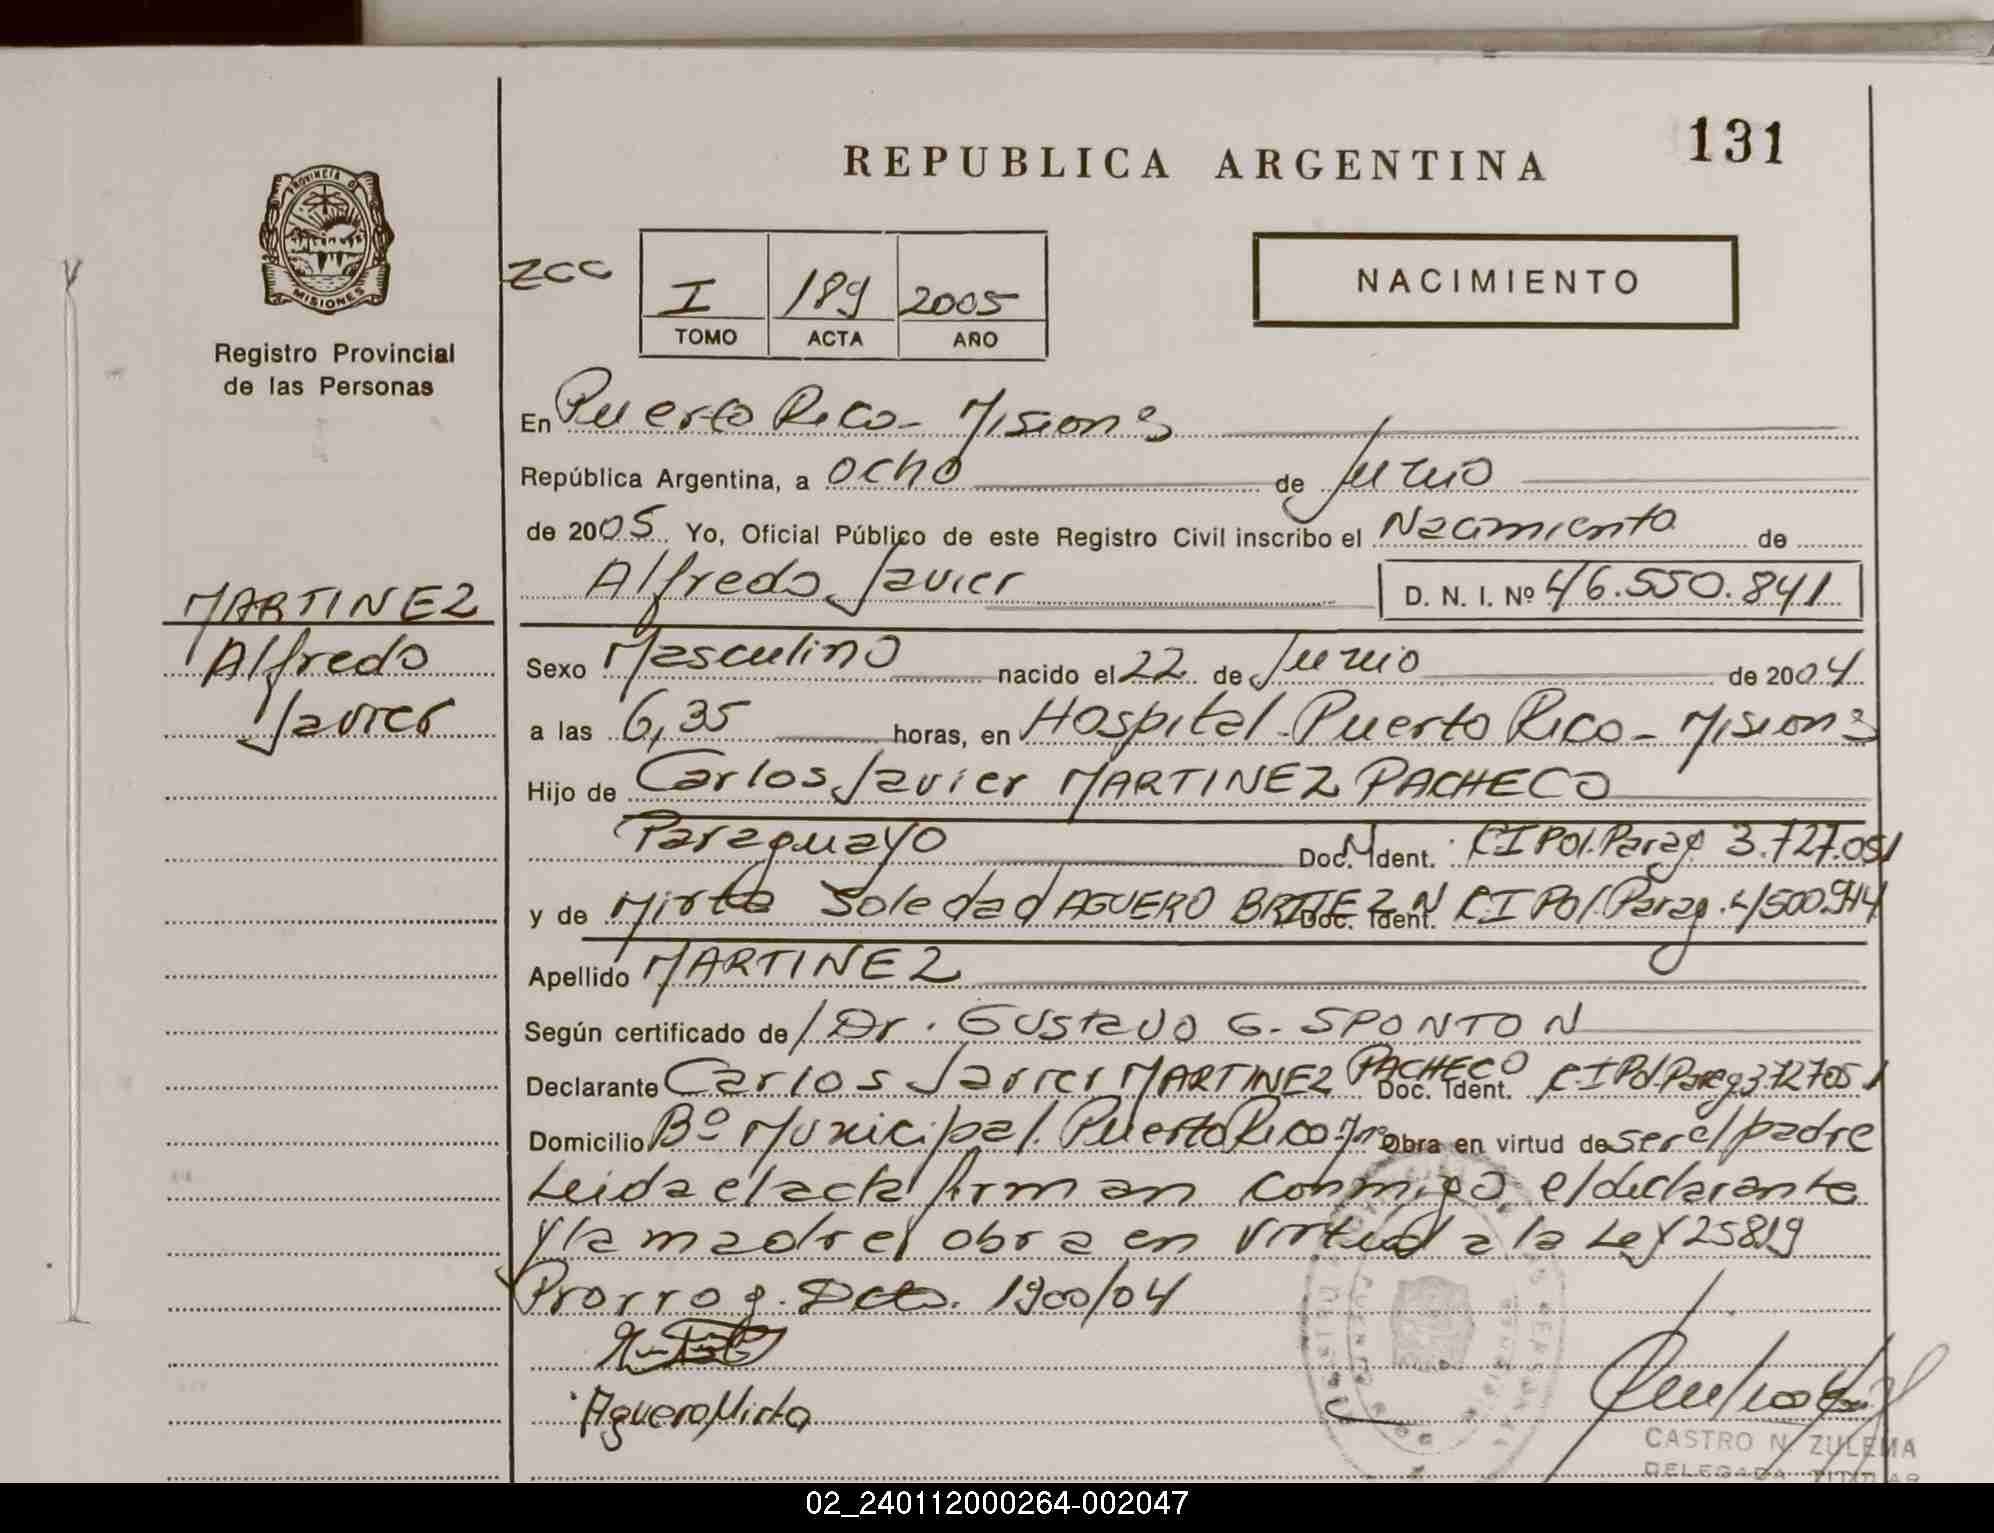 131
REPUBLICA ARGENTINA
PROVINCIA DE
MISIONES
Registro Provincial
de las Personas
zcc
I 189 2005
TOMO ACTA AÑO
NACIMIENTO
En Puerto Rico - Misiones
República Argentina, a ocho de Junio
de 2005 Yo, Oficial Público de este Registro Civil inscribo el Nacimiento de
Alfredo Javier D. N. I. Nº 46.550.841
MARTINEZ
Alfredo
Javier
Sexo Masculino nacido el 22 de Junio de 2004
a las 6,35 horas, en Hospital - Puerto Rico - Misiones
Hijo de Carlos Javier MARTINEZ PACHECO
Paraguayo Doc. Ident. N CI Pol. Parag 3.727.051
y de Mirta Soledad AGUERO BRITEZ Doc. Ident. N CI Pol. Parag. 4500.914
Apellido MARTINEZ
Según certificado de Dr. Gustavo G. SPONTON
Declarante Carlos Javier MARTINEZ PACHECO Doc. Ident. CI Pol Parag 3.727051
Domicilio Bº Municipal. Puerto Rico. Mnes Obra en virtud de ser el padre
Leida el acta firman conmigo el declarante
y la madre obra en virtud a la Ley 25819
Prorrog. Dcto. 1900/04
Aguero Mirta
CASTRO N. ZULEMA
DELEGADA TITULAR
02_240112000264-002047